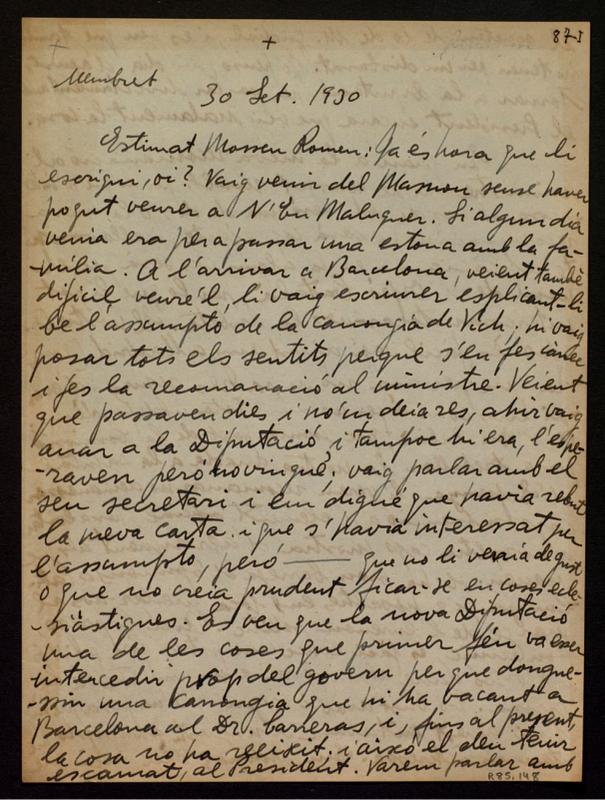 87-I
+ +
Membret
30 Set. 1930
Estimat Mossen Romeu: Ja és hora que li
escrigui, oi? Vaig venir del Masnou sense haver
pogut veurer a N'En Maluquer. Si algun dia
venia era per a passar una estona amb la fa-
-milia. A l'arrivar a Barcelona, veient també
dificil veure'l, li vaig escriurer esplicant-li
be l'assumpto de la canongia de Vich; hi vaig
posar tots els sentits perque s'en fes càrrec
i fes la recomanació al ministre. Veient
que passaven dies i no'm deia res, ahir vaig
anar a la Diputació i tampoc hi era, l'espe-
-raven però no vingué; vaig parlar amb el
seu secretari i em digué que havia rebut
la meva carta. i que s'havia interessat per
l'assumpto, però —— que no li venia de gust
o que no creia prudent ficar-se en coses ecle-
-siàstiques. Es veu que la nova Diputació
una de les coses que primer féu va esser
intercedir prop del govern per que dongue-
-ssin una Canongia que hi ha vacant a
Barcelona al Dr. Carreras, i, fins al present,
la cosa no ha reeixit. i això el deu tenir
escamat, al President. Varem parlar amb
R85.148